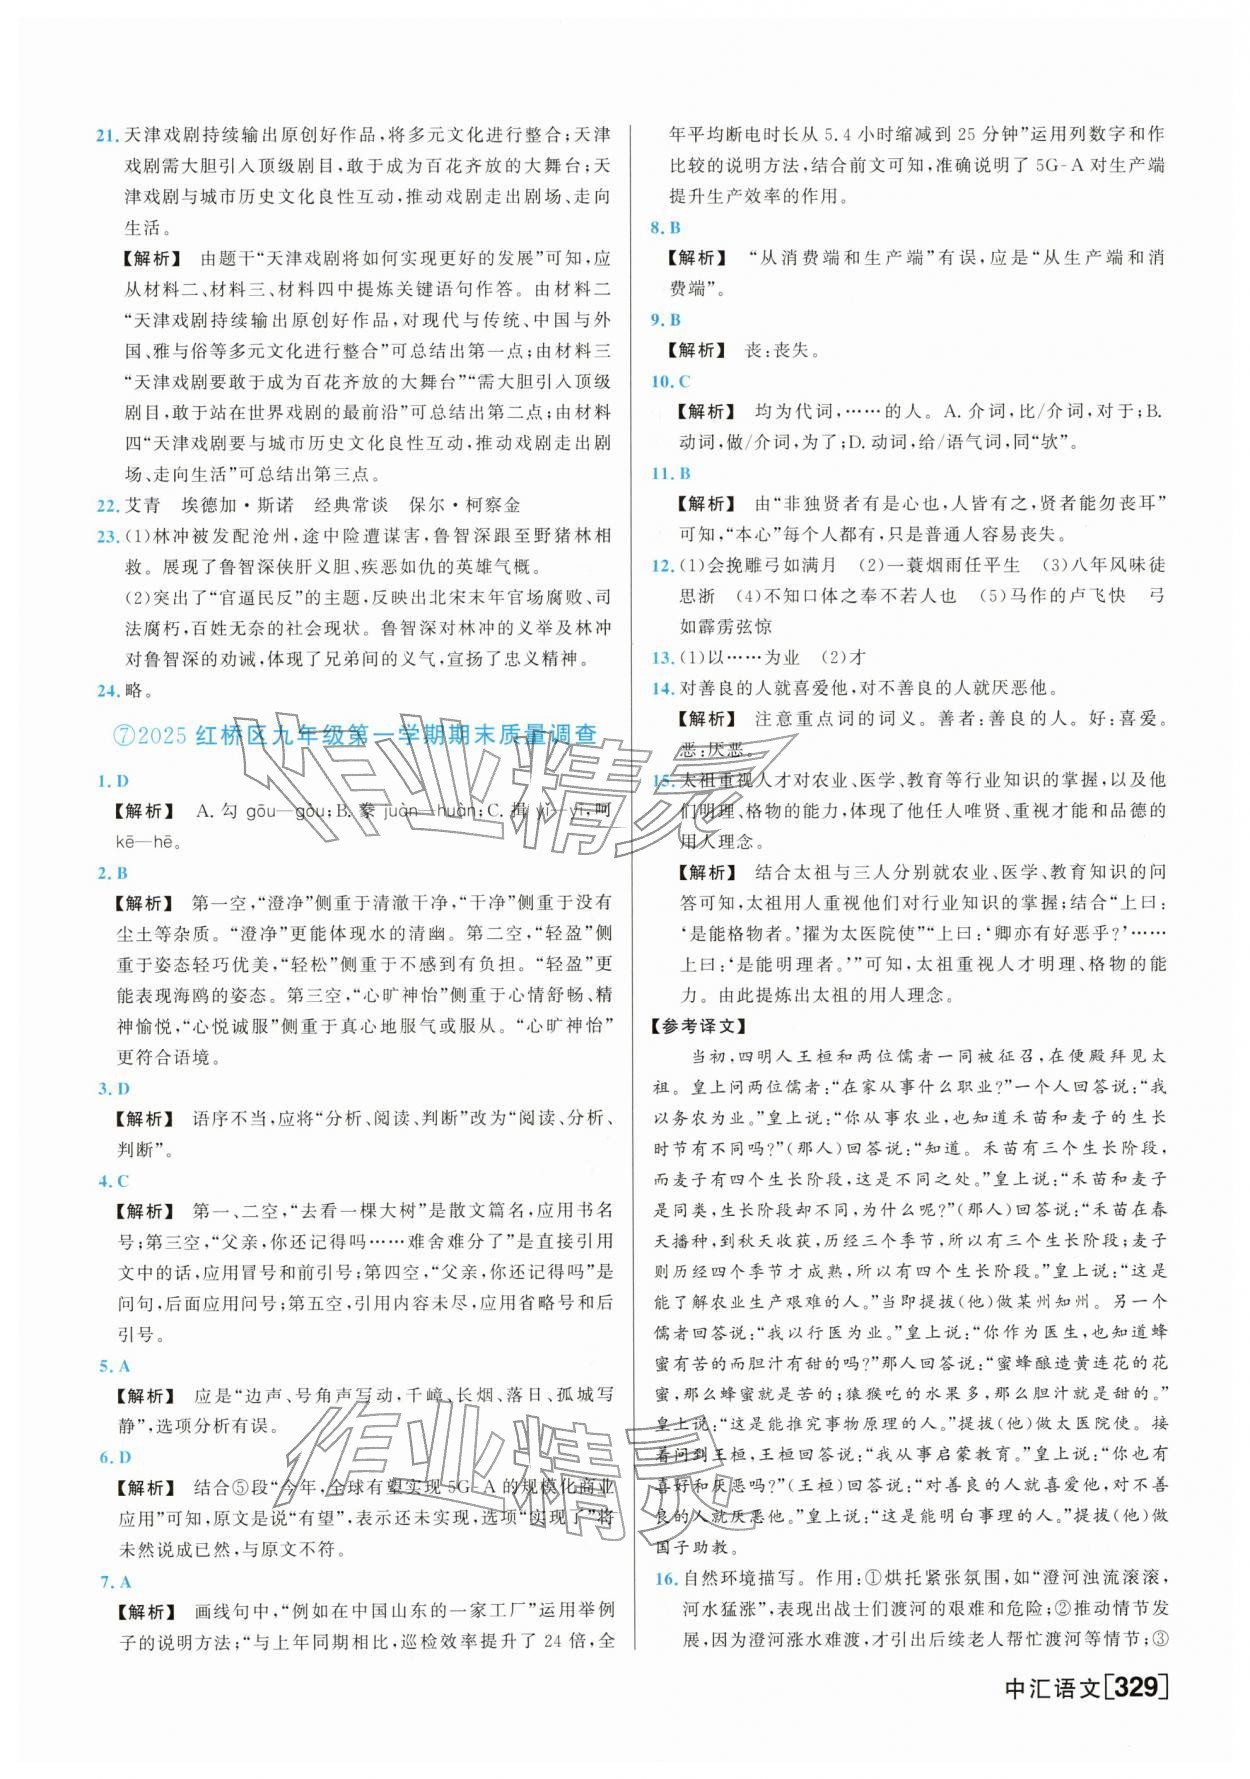 21. 天津戏剧持续输出原创好作品,将多元文化进行整合;天津
戏剧需大胆引入顶级剧目,敢于成为百花齐放的大舞台;天
津戏剧与城市历史文化良性互动,推动戏剧走出剧场、走向
生活。
【解析】 由题干“天津戏剧将如何实现更好的发展”可知,应
从材料二、材料三、材料四中提炼关键语句作答。由材料二
“天津戏剧持续输出原创好作品,对现代与传统、中国与外
国、雅与俗等多元文化进行整合”可总结出第一点;由材料三
“天津戏剧要敢于成为百花齐放的大舞台”“需大胆引入顶级
剧目,敢于站在世界戏剧的最前沿”可总结出第二点;由材料
四“天津戏剧要与城市历史文化良性互动,推动戏剧走出剧
场、走向生活”可总结出第三点。
22. 艾青 埃德加·斯诺 经典常谈 保尔·柯察金
23. (1)林冲被发配沧州,途中险遭谋害,鲁智深跟至野猪林相
救。展现了鲁智深侠肝义胆、疾恶如仇的英雄气概。
(2)突出了“官逼民反”的主题,反映出北宋末年官场腐败、司
法腐朽,百姓无奈的社会现状。鲁智深对林冲的义举及林冲
对鲁智深的劝诫,体现了兄弟间的义气,宣扬了忠义精神。
24. 略。
⑦2025 红桥区九年级第一学期期末质量调查
1. D
【解析】 A. 勾 gōu—gòu;B. 豢 juàn—huàn;C. 揖 yǐ—yī,呵
kē—hē。
2. B
【解析】 第一空,“澄净”侧重于清澈干净,“干净”侧重于没有
尘土等杂质。“澄净”更能体现水的清幽。第二空,“轻盈”侧
重于姿态轻巧优美,“轻松”侧重于不感到有负担。“轻盈”更
能表现海鸥的姿态。第三空,“心旷神怡”侧重于心情舒畅、精
神愉悦,“心悦诚服”侧重于真心地服气或服从。“心旷神怡”
更符合语境。
3. D
【解析】 语序不当,应将“分析、阅读、判断”改为“阅读、分析、
判断”。
4. C
【解析】 第一、二空,“去看一棵大树”是散文篇名,应用书名
号;第三空,“父亲,你还记得吗……难舍难分了”是直接引用
文中的话,应用冒号和前引号;第四空,“父亲,你还记得吗”是
问句,后面应用问号;第五空,引用内容未尽,应用省略号和后
引号。
5. A
【解析】 应是“边声、号角声写动,千嶂、长烟、落日、孤城写
静”,选项分析有误。
6. D
【解析】 结合⑤段“今年,全球有望实现 5G-A 的规模化商业
应用”可知,原文是说“有望”,表示还未实现,选项“实现了”将
未然说成已然,与原文不符。
7. A
【解析】 画线句中,“例如在中国山东的一家工厂”运用举例
子的说明方法;“与上年同期相比,巡检效率提升了 24 倍,全
年平均断电时长从 5.4 小时缩减到 25 分钟”运用列数字和作
比较的说明方法,结合前文可知,准确说明了 5G-A 对生产端
提升生产效率的作用。
8. B
【解析】 “从消费端和生产端”有误,应是“从生产端和消
费端”。
9. B
【解析】 丧:丧失。
10. C
【解析】 均为代词,……的人。A. 介词,比/介词,对于;B.
动词,做/介词,为了;D. 动词,给/语气词,同“欤”。
11. B
【解析】 由“非独贤者有是心也,人皆有之,贤者能勿丧耳”
可知,“本心”每个人都有,只是普通人容易丧失。
12. (1)会挽雕弓如满月 (2)一蓑烟雨任平生 (3)八年风味徒
思浙 (4)不知口体之奉不若人也 (5)马作的卢飞快 弓
如霹雳弦惊
13. (1)以……为业 (2)才
14. 对善良的人就喜爱他,对不善良的人就厌恶他。
【解析】 注意重点词的词义。善者:善良的人。好:喜爱。
恶:厌恶。
15. 太祖重视人才对农业、医学、教育等行业知识的掌握,以及他
们明理、格物的能力,体现了他任人唯贤、重视才能和品德的
用人理念。
【解析】 结合太祖与三人分别就农业、医学、教育知识的问
答可知,太祖用人重视他们对行业知识的掌握;结合“上曰:
‘是能格物者。’擢为太医院使”“上曰:‘卿亦有好恶乎?’……
上曰:‘是能明理者。’”可知,太祖重视人才明理、格物的能
力。由此提炼出太祖的用人理念。
【参考译文】
当初,四明人王桓和两位儒者一同被征召,在便殿拜见太
祖。皇上问两位儒者:“在家从事什么职业?”一个人回答说:“我
以务农为业。”皇上说:“你从事农业,也知道禾苗和麦子的生长
时节有不同吗?”(那人)回答说:“知道。禾苗有三个生长阶段,
而麦子有四个生长阶段,这是不同之处。”皇上说:“禾苗和麦子
是同类,生长阶段却不同,为什么呢?”(那人)回答说:“禾苗在春
天播种,到秋天收获,历经三个季节,所以有三个生长阶段;麦子
则历经四个季节才成熟,所以有四个生长阶段。”皇上说:“这是
能了解农业生产艰难的人。”当即提拔(他)做某州知州。另一个
儒者回答说:“我以行医为业。”皇上说:“你作为医生,也知道蜂
蜜有苦的而胆汁有甜的吗?”那人回答说:“蜜蜂酿造黄连花的花
蜜,那么蜂蜜就是苦的;猿猴吃的水果多,那么胆汁就是甜的。”
皇上说:“这是能推究事物原理的人。”提拔(他)做太医院使。接
着问到王桓,王桓回答说:“我从事启蒙教育。”皇上说:“你也有
喜好和厌恶吗?”(王桓)回答说:“对善良的人就喜爱他,对不善
良的人就厌恶他。”皇上说:“这是能明白事理的人。”提拔(他)做
国子助教。
16. 自然环境描写。作用:①烘托紧张氛围,如“澄河浊流滚滚,
河水猛涨”,表现出战士们渡河的艰难和危险;②推动情节发
展,因为澄河涨水难渡,才引出后续老人帮忙渡河等情节;③
中汇语文[329]
作业精灵
作业精灵